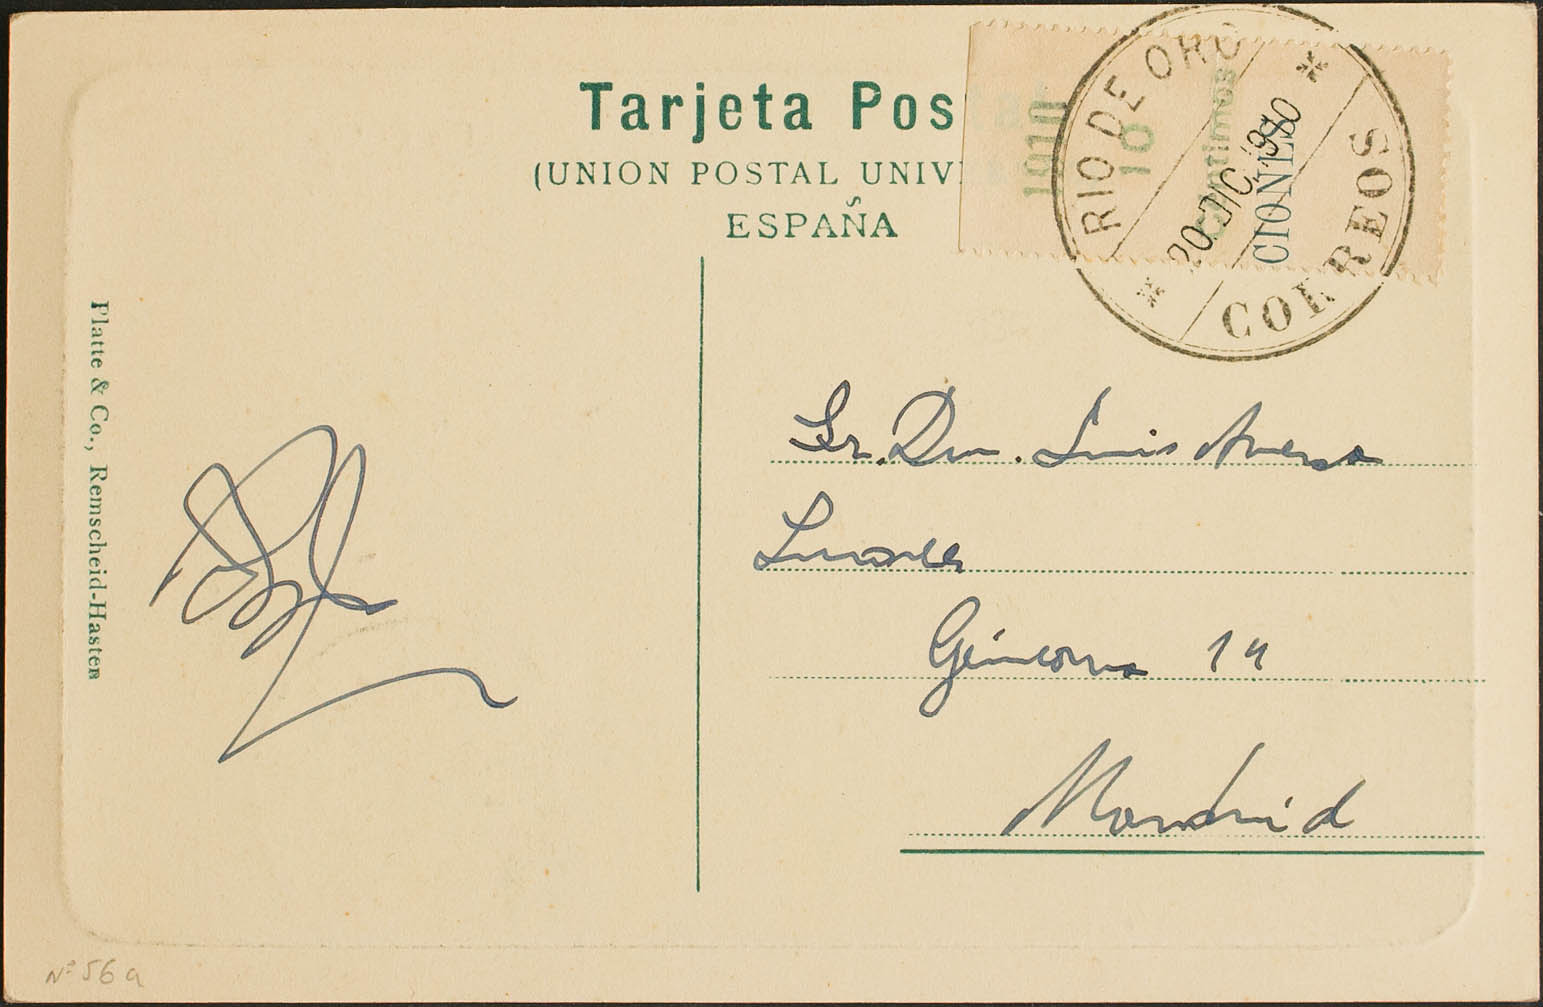 Tarjeta Pos
(UNION POSTAL UNIV
ESPAÑA
1910
10
Céntimos
CIONES
RIO DE ORO
20 DIC. 1910
CORREOS
Platte & Co., Remscheid-Hasten
Sr. Dn. Luis
Génova 14
Madrid
Nº 56a